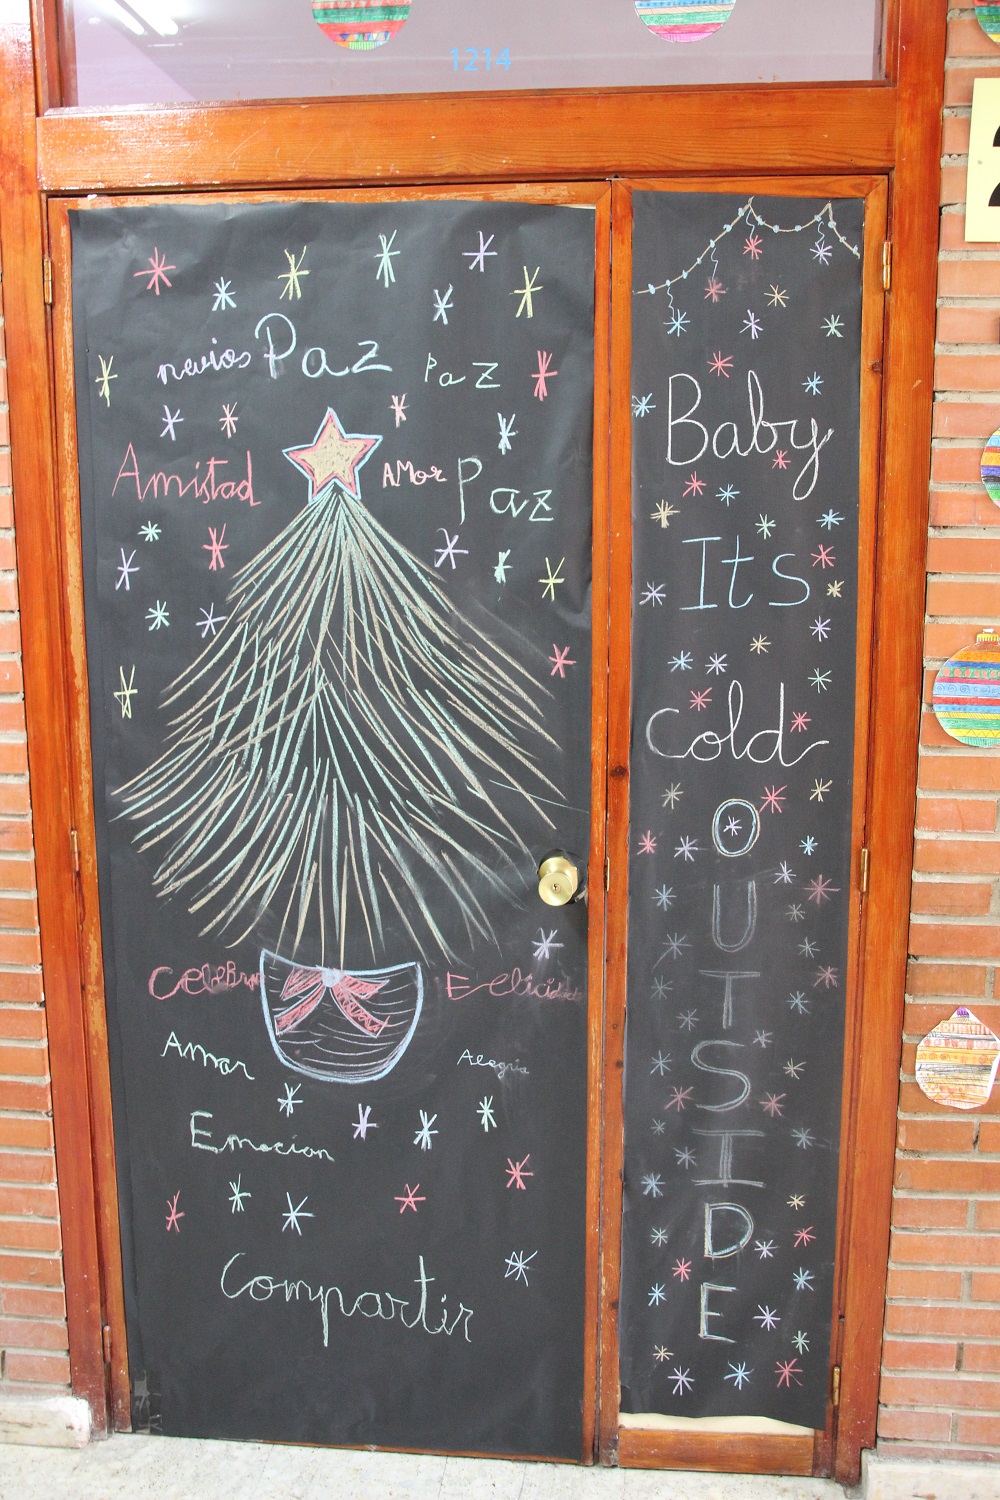 1214
nevios Paz Paz
Amistad AMor Paz
Celebrar Felicidad
Amor Alegria
Emocion
Compartir
Baby
Its
cold
O
U
T
S
I
D
E